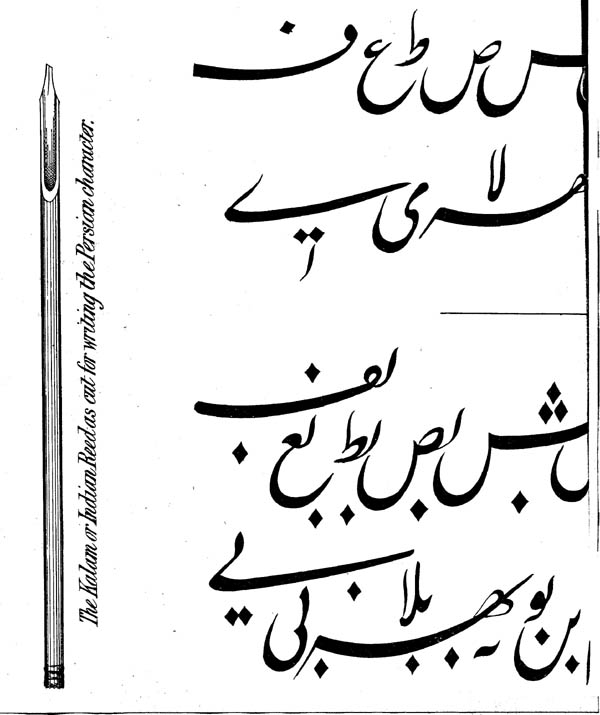 The Kalam or Indian Reed as cut for writing the Persian character.
س ص ط ع ف
لا ی ے
بس بص بط بع بف
بن بو بلا بی بے